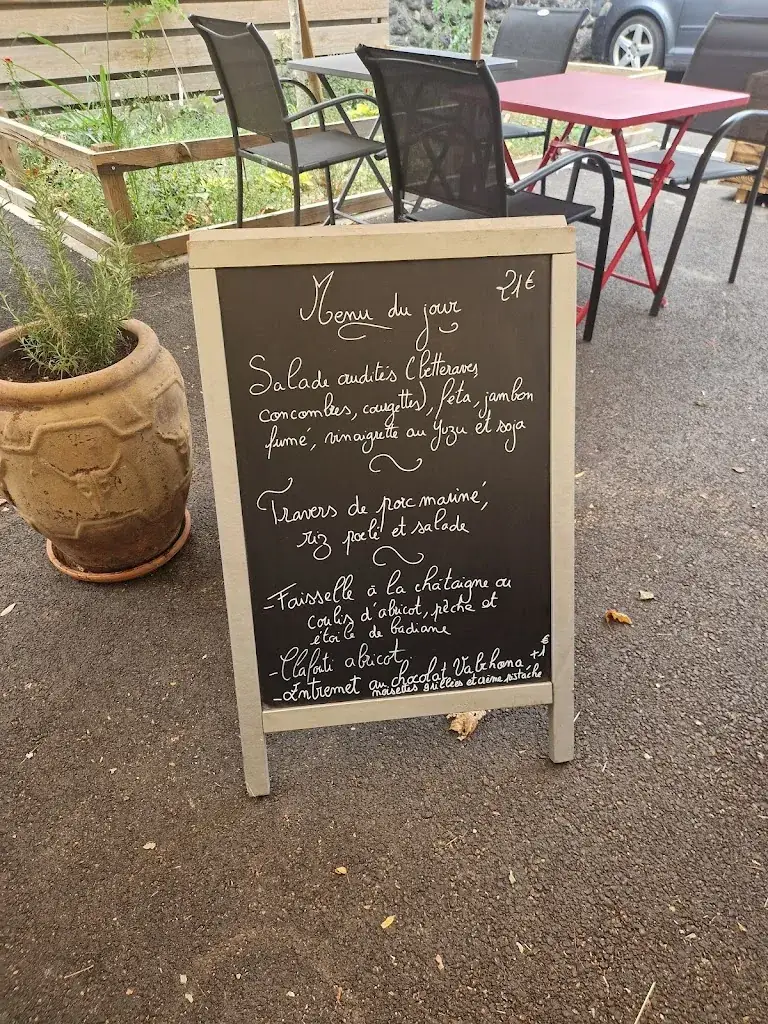 Menu du jour 21€
Salade crudités (betteraves
concombres, courgettes), feta, jambon
fumé, vinaigrette au yuzu et soja
Travers de porc mariné,
riz poêlé et salade
-Faisselle à la châtaigne ou
coulis d'abricot, pêche et
étoile de badiane
-Clafouti abricot
-Entremet au chocolat Valrhona, +1€
noisettes grillées et crème pistache